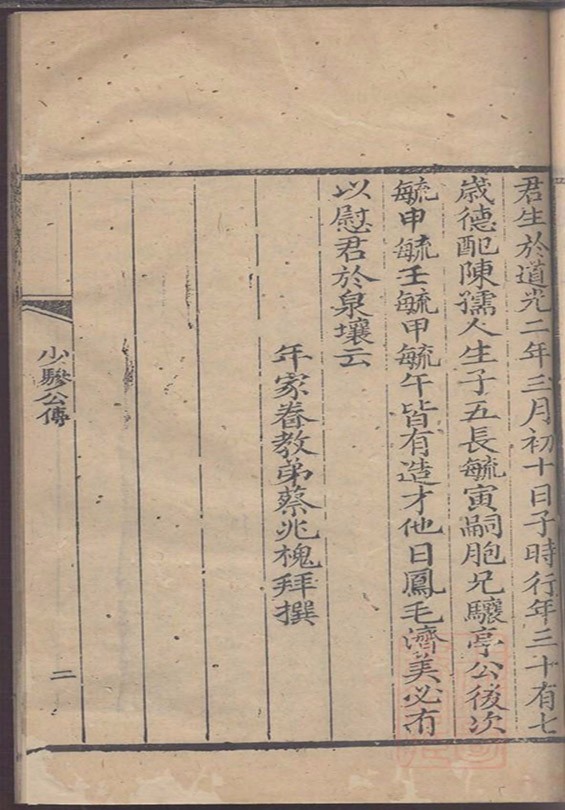 君生於道光二年三月初十日子時行年三十有七
歲德配陳孺人生子五長毓寅嗣胞兄驤亭公後次
毓申毓壬毓甲毓午皆有造才他日鳳毛濟美必有
以慰君於泉壤云
年家眷教弟蔡兆槐拜撰
少驂公傳
二